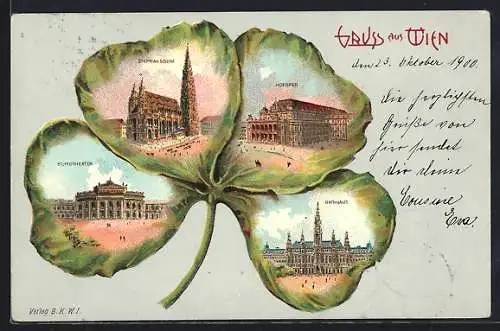 Gruss aus Wien
den 23. Oktober 1900.
STEPHANSDOM
HOFOPER
Die herzlichsten
Grüße von
hier sendet
dir deine
Cousine
Eva.
BURGTHEATER
RATHAUS.
Verlag B.K.W.I.